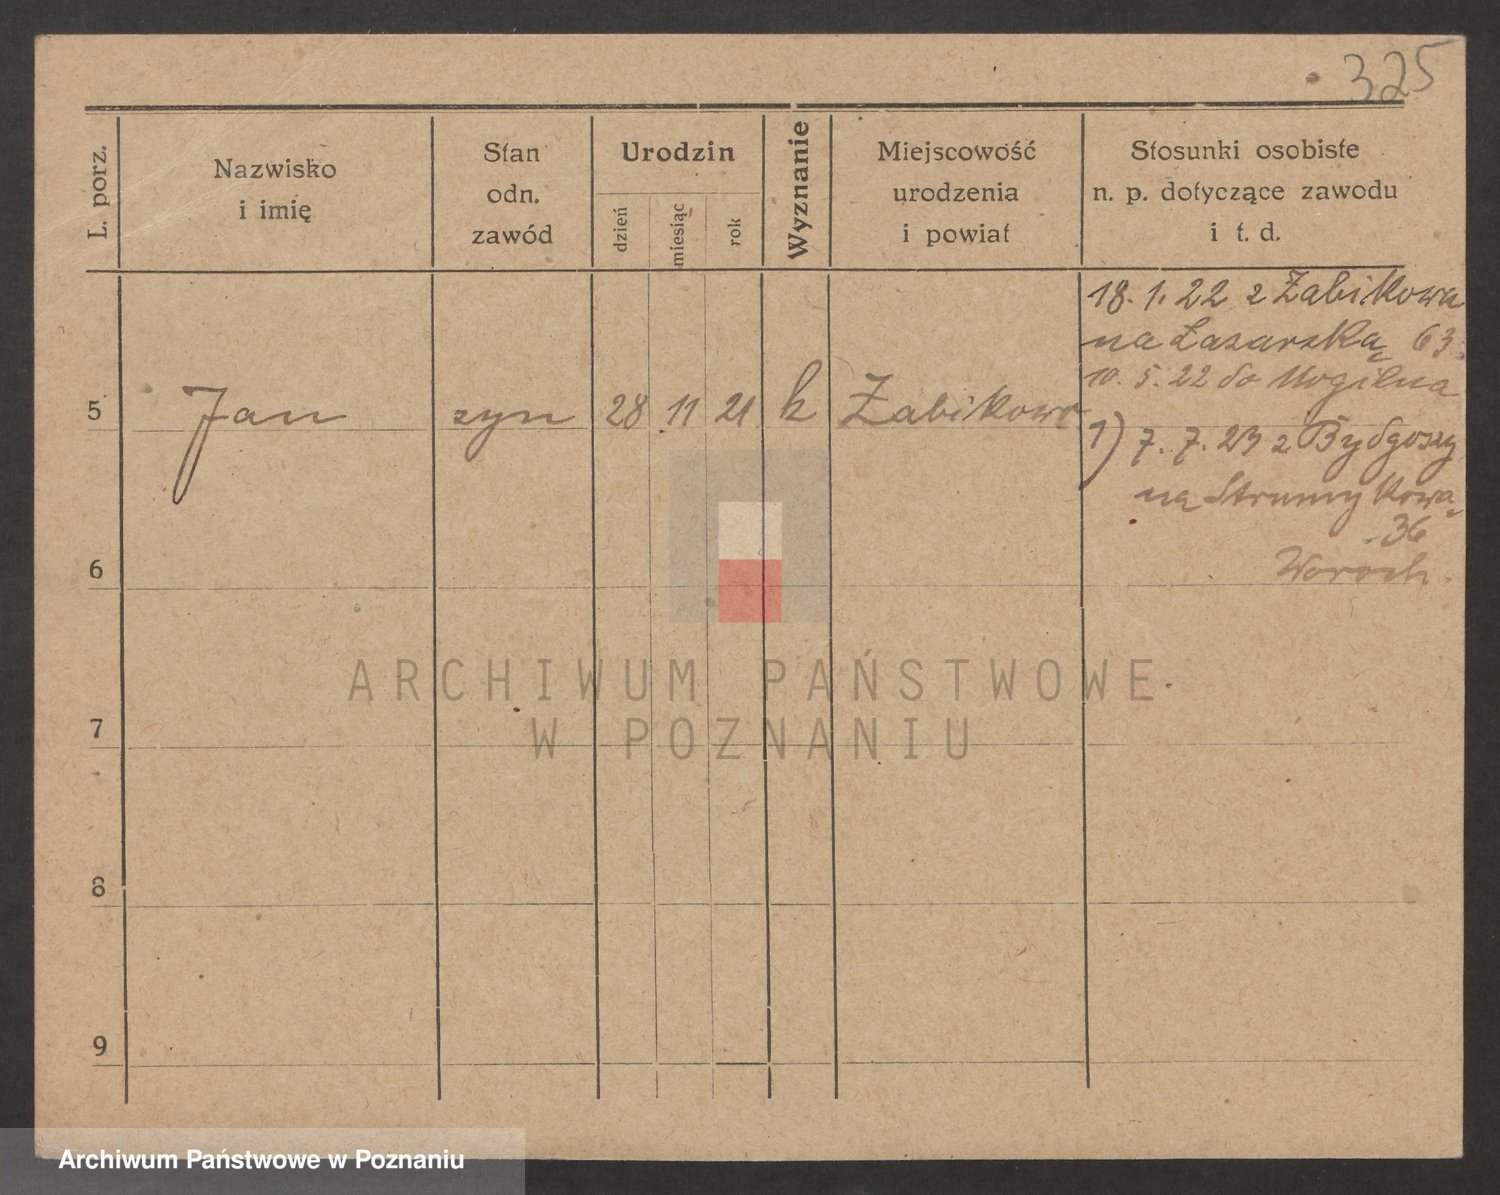 325
L. porz.
Nazwisko
i imię
Stan
odn.
zawód
Urodzin
dzień
miesiąc
rok
Wyznanie
Miejscowość
urodzenia
i powiat
Stosunki osobiste
n. p. dotyczące zawodu
i t. d.
18. 1. 22 z Żabikowa
na Łazarską 63.
10. 5. 22 do Mogilna
5 Jan syn 28 11 21 k Żabikowo
1) 7. 7. 23 z Bydgoszy
na Strumykową
36
6
7
8
9
ARCHIWUM PAŃSTWOWE
W POZNANIU
Archiwum Państwowe w Poznaniu